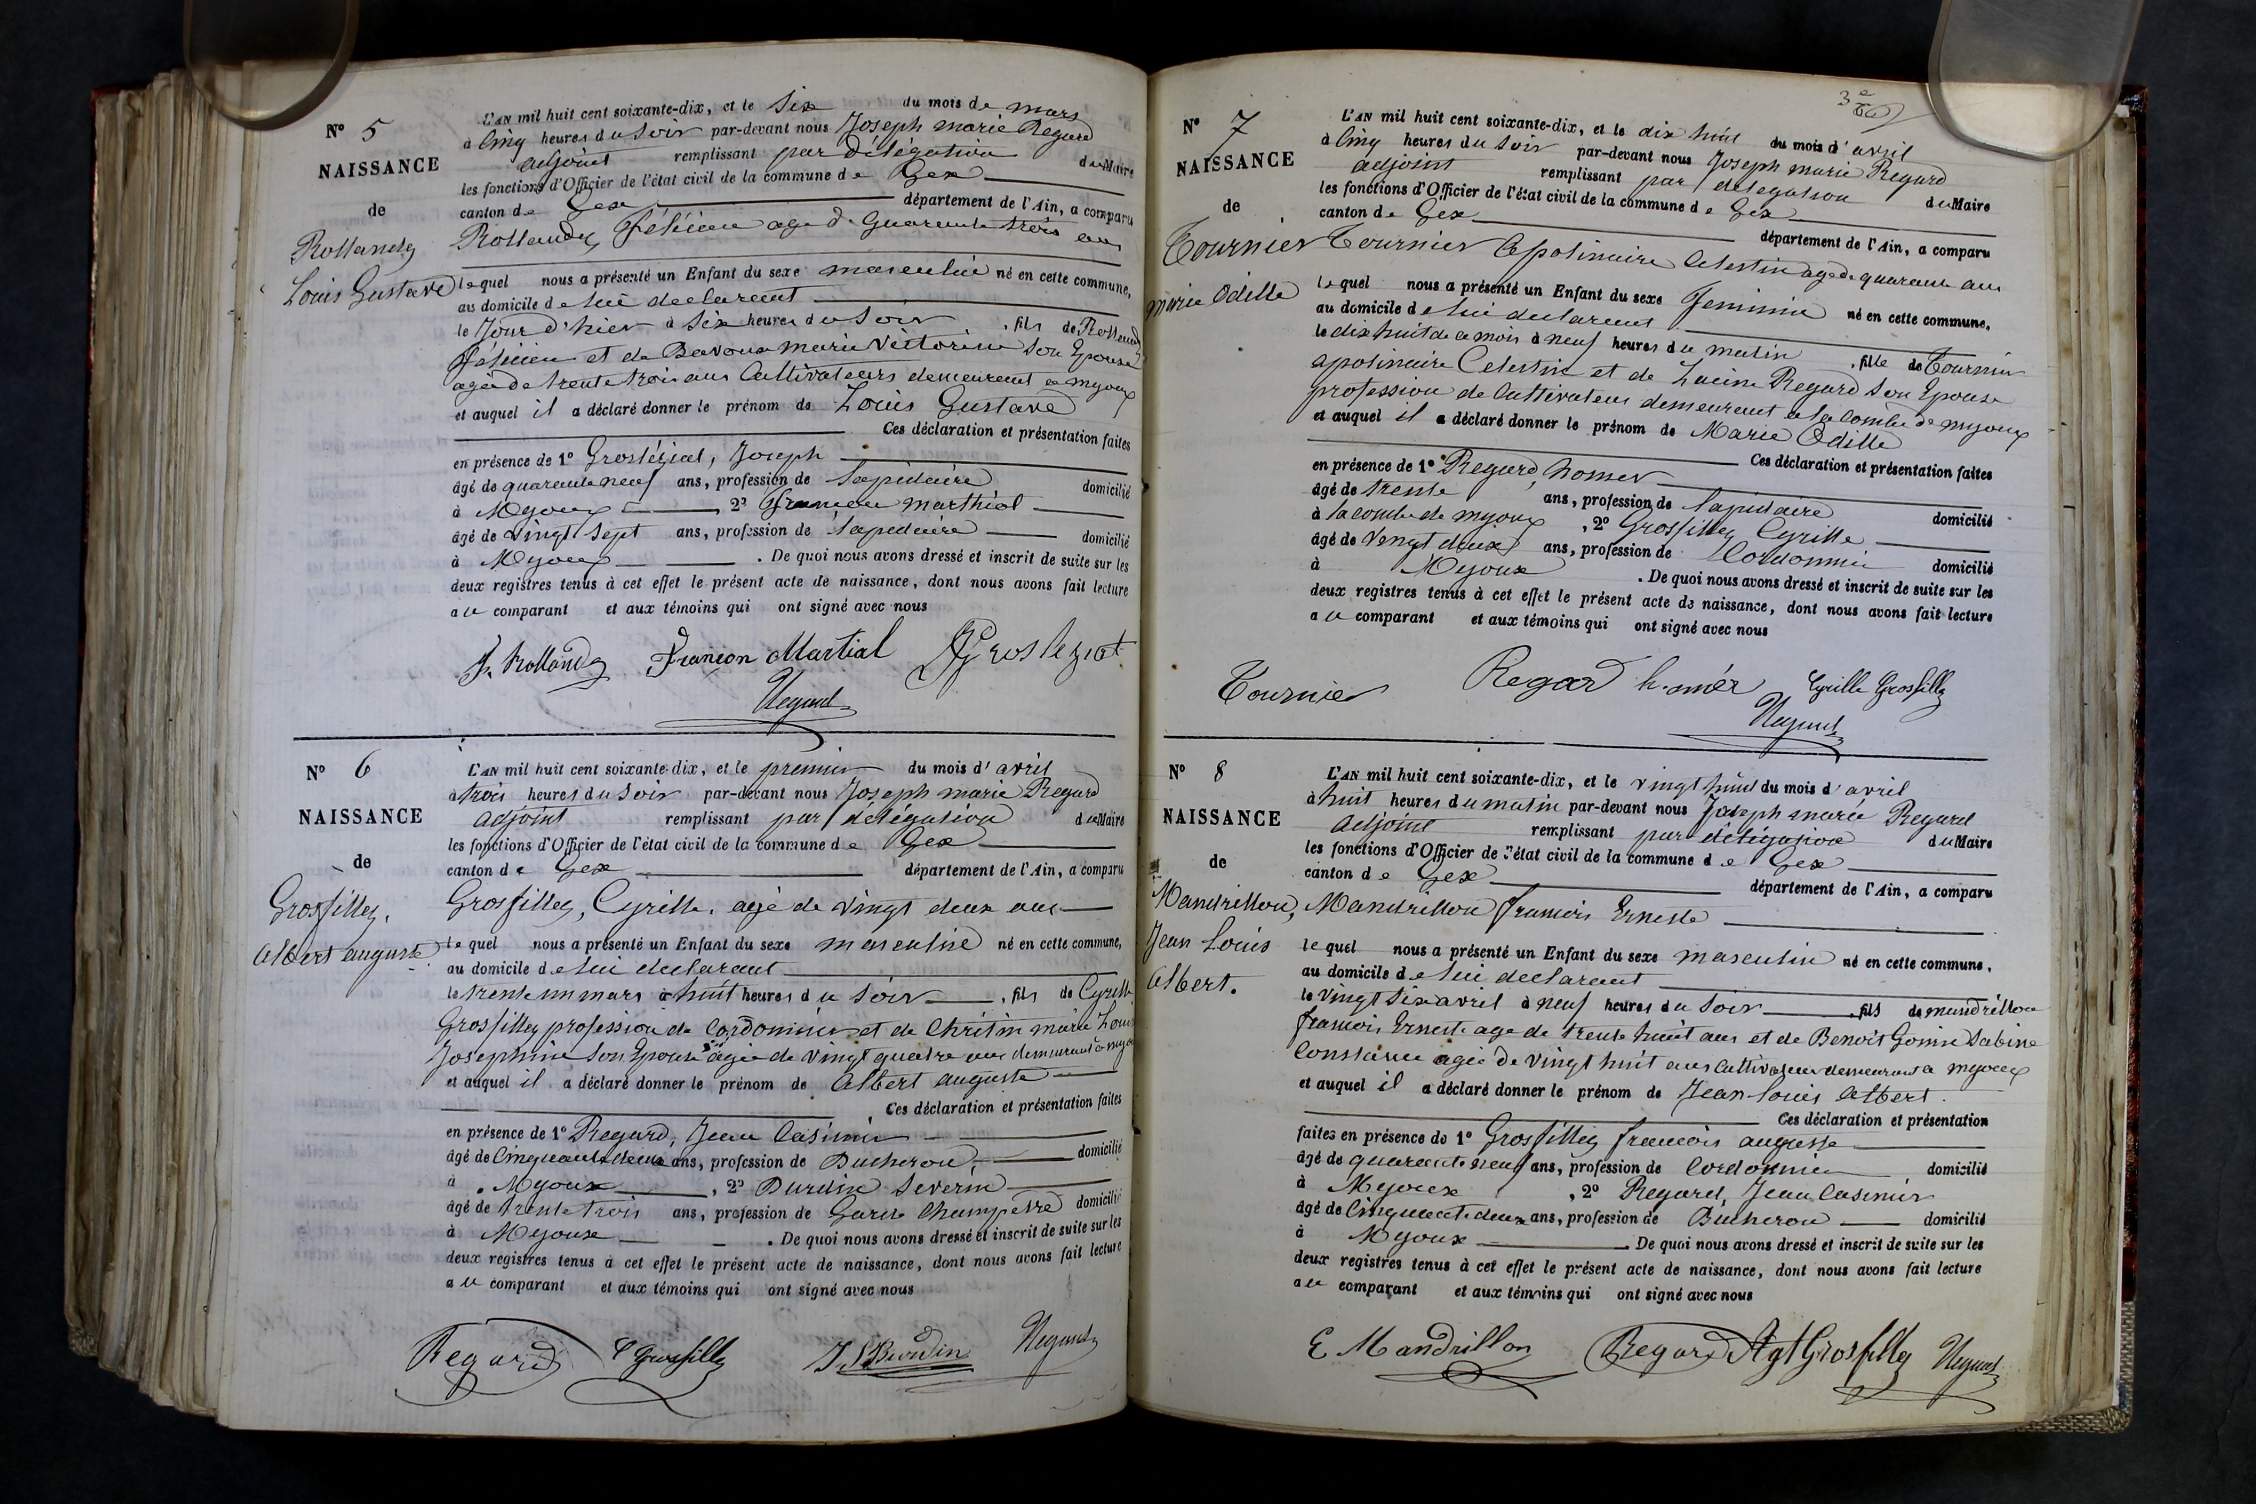 N° 5
NAISSANCE
de
Rollandez
Louis Gustave
L'AN mil huit cent soixante-dix, et le Six du mois de mars
à Cinq heures du Soir par-devant nous Joseph marie Regard
adjoint remplissant par délégation du Maire
les fonctions d'Officier de l'état civil de la commune de Gex
canton de Gex département de l'Ain, a comparu
Rollandez Félicien age de quarente trois ans
lequel nous a présenté un Enfant du sexe masculin né en cette commune,
au domicile de lui declarent
le Jour d'hier à Six heures du Soir, fils de Rolland
félicien et de Bavoux Marie Vittorine Son Epouse
agée de trente trois ans Cultivateurs demeurent à myoux
et auquel il a déclaré donner le prénom de Louis Gustave
Ces déclaration et présentation faites
en présence de 1° Grosléziat, Joseph
âgé de quarente neuf ans, profession de Lapidaire domicilié
à Myoux, 2° françon marthial
âgé de vingt Sept ans, profession de lapidaire domicilié
à Myoux. De quoi nous avons dressé et inscrit de suite sur les
deux registres tenus à cet effet le présent acte de naissance, dont nous avons fait lecture
au comparant et aux témoins qui ont signé avec nous
F. Rollandez Françon Martial J Groslezíat
Regard
N° 6
NAISSANCE
de
Grosfilley,
Albert auguste
L'AN mil huit cent soixante-dix, et le premier du mois d'avril
à trois heures du Soir par-devant nous Joseph marie Regard
adjoint remplissant par délégation du Maire
les fonctions d'Officier de l'état civil de la commune de Gex
canton de Gex département de l'Ain, a comparu
Grosfilley, Cyrille, agé de vingt deux ans
lequel nous a présenté un Enfant du sexe masculine né en cette commune,
au domicile de lui declarant
le trente un mars à huit heures du Soir, fils de Cyrille
Grosfilley profession de Cordonnier et de Christin marie Louis
Josephine Son Epouse agée de vingt quatre ans demeurant à myo
et auquel il a déclaré donner le prénom de Albert auguste
Ces déclaration et présentation faites
en présence de 1° Regard, Jean Casimir
âgé de Cinquante deux ans, profession de Bucheron, domicilié
à Myoux, 2° Burdin Severin
âgé de trente trois ans, profession de Garde Champetre domicilié
à Myoux. De quoi nous avons dressé et inscrit de suite sur les
deux registres tenus à cet effet le présent acte de naissance, dont nous avons fait lecture
au comparant et aux témoins qui ont signé avec nous
Regard C Grosfilley J. S Burdin Regard
3e
N° 7
NAISSANCE
de
Tournier
marie Odille
L'AN mil huit cent soixante-dix, et le dix huit du mois d'avril
à Cinq heures du Soir par-devant nous Joseph marie Regard
adjoint remplissant par délégation du Maire
les fonctions d'Officier de l'état civil de la commune de Gex
canton de Gex département de l'Ain, a comparu
Tournier Apolinaire Celestin age de quarante ans
lequel nous a présenté un Enfant du sexe Feminin né en cette commune,
au domicile de lui declarent
le dix huit de ce mois à neuf heures du matin, fille de Tournier
apolinaire Celestin et de Lucine Regard Son Epouse
profession de Cultivateur demeurent à la Combe de myoux
et auquel il a déclaré donner le prénom de Marie Odille
Ces déclaration et présentation faites
en présence de 1° Regard, homer
âgé de trente ans, profession de lapidaire domicilié
à la combe de myoux, 2° Grosfilley Cyrille
âgé de vengt deux ans, profession de Cordonnier domicilié
à Myoux. De quoi nous avons dressé et inscrit de suite sur les
deux registres tenus à cet effet le présent acte de naissance, dont nous avons fait lecture
au comparant et aux témoins qui ont signé avec nous
Tournier Regard homér Cyrille Grosfilley
Regard
N° 8
NAISSANCE
de
Mandrillon,
Jean Louis
Albert.
L'AN mil huit cent soixante-dix, et le vingt huit du mois d'avril
à huit heures du matin par-devant nous Joseph marie Regard
adjoint remplissant par délégation du Maire
les fonctions d'Officier de l'état civil de la commune de Gex
canton de Gex département de l'Ain, a comparu
Mandrillon françois Erneste
lequel nous a présenté un Enfant du sexe masculin né en cette commune,
au domicile de lui declarent
le vingt six avril à neuf heures du Soir, fils de mandrillon
françois Erneste age de trente huit ans et de Benoit Gonin Sabine
Constance agée de vingt huit ans Cultivateur demeurant à myoux
et auquel il a déclaré donner le prénom de Jean-Louis Albert.
Ces déclaration et présentation
faites en présence de 1° Grosfilley françois auguste
âgé de quarente neuf ans, profession de Cordonnier domicilié
à Myoux, 2° Regard, Jean Casimir
âgé de Cinquante deux ans, profession de Bucheron domicilié
à Myoux. De quoi nous avons dressé et inscrit de suite sur les
deux registres tenus à cet effet le présent acte de naissance, dont nous avons fait lecture
au comparant et aux témoins qui ont signé avec nous
E Mandrillon Regard Agt Grosfilley Regard